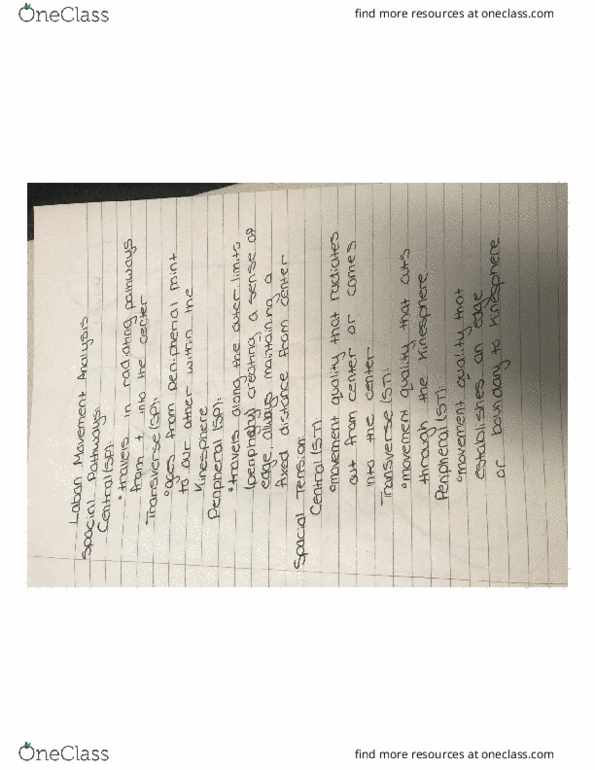 OneClass
find more resources at oneclass.com
Laban Movement Analysis
Spacial Pathways:
Central (SP):
"travels in radiating pathways
from + into the center
Transverse (SP):
"goes from peripheral point
to our other within the
Kinesphere
Peripheral (SP):
"travels along the outer limits
(periphery) creating a sense of
edge, always maintaining a
fixed distance from center
Spacial Tension:
Central (ST):
"movement quality that radiates
out from center or comes
into the center
Transverse (ST):
"movement quality that cuts
through the Kinesphere
Peripheral (ST):
"movement quality that
establishes an edge
or boundary to Kinesphere
OneClass
find more resources at oneclass.com